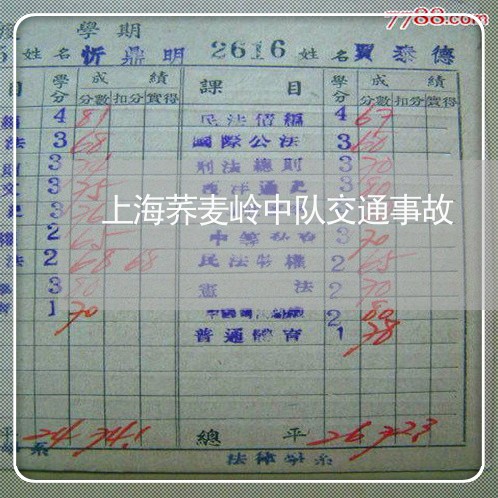 7788.com
學期
姓名 忻鼎明 2616 姓名 賈泰德
目 學分 成績 課目 學分 成績
分數 扣分 實得 分數 扣分 實得
4 81 民法債編 4 67
法 3 68 國際公法 3 60
3 刑法總則 3 70
3 75 西洋通史 3 80
上海荞麦岭中队交通事故
2 65 3 70
法 2 68 68 民法物權 2 65
3 80 憲法 2 70
1 70 2 80
普通體育 1 78
平 24 74.1 總平 26 72.3
系 法律學系